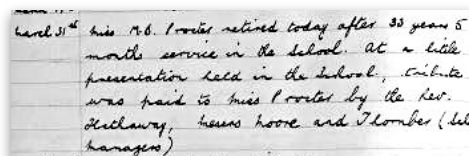 March 31st Miss M.B. Procter retired today after 33 years 5
months service in the School. At a little
presentation held in the School, tribute
was paid to Miss Procter by the Rev.
Hathaway, Messrs Moore and Thornber (
managers)